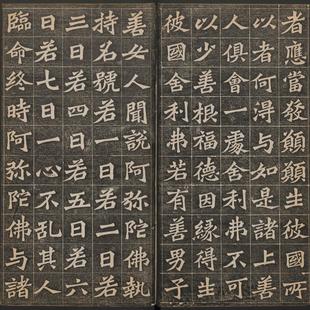 者應當發願願生彼國所
以者何得与如是諸上善
人俱會一處舍利弗不可
以少善根福德因緣得生
彼國舍利弗若有善男子
善女人聞說阿弥陀佛執
持名號若一日若二日若
三日若四日若五日若六
日若七日一心不亂其人
臨命終時阿弥陀佛与諸